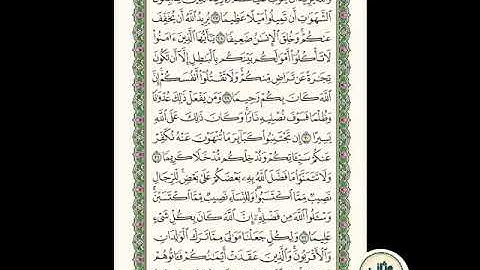 الشَّهَوَٰتِ أَن تَمِيلُوا۟ مَيْلًا عَظِيمًا ۝ يُرِيدُ ٱللَّهُ أَن يُخَفِّفَ
عَنكُمْ وَخُلِقَ ٱلْإِنسَٰنُ ضَعِيفًا ۝ يَٰٓأَيُّهَا ٱلَّذِينَ ءَامَنُوا۟
لَا تَأْكُلُوٓا۟ أَمْوَٰلَكُم بَيْنَكُم بِٱلْبَٰطِلِ إِلَّآ أَن تَكُونَ
تِجَٰرَةً عَن تَرَاضٍ مِّنكُمْ وَلَا تَقْتُلُوٓا۟ أَنفُسَكُمْ إِنَّ
ٱللَّهَ كَانَ بِكُمْ رَحِيمًا ۝ وَمَن يَفْعَلْ ذَٰلِكَ عُدْوَٰنًا
وَظُلْمًا فَسَوْفَ نُصْلِيهِ نَارًا وَكَانَ ذَٰلِكَ عَلَى ٱللَّهِ
يَسِيرًا ۝ إِن تَجْتَنِبُوا۟ كَبَآئِرَ مَا تُنْهَوْنَ عَنْهُ نُكَفِّرْ
عَنكُمْ سَيِّـَٔاتِكُمْ وَنُدْخِلْكُم مُّدْخَلًا كَرِيمًا ۝
وَلَا تَتَمَنَّوْا۟ مَا فَضَّلَ ٱللَّهُ بِهِۦ بَعْضَكُمْ عَلَىٰ بَعْضٍ لِّلرِّجَالِ
نَصِيبٌ مِّمَّا ٱكْتَسَبُوا۟ وَلِلنِّسَآءِ نَصِيبٌ مِّمَّا ٱكْتَسَبْنَ
وَسْـَٔلُوا۟ ٱللَّهَ مِن فَضْلِهِۦٓ إِنَّ ٱللَّهَ كَانَ بِكُلِّ شَىْءٍ
عَلِيمًا ۝ وَلِكُلٍّ جَعَلْنَا مَوَٰلِىَ مِمَّا تَرَكَ ٱلْوَٰلِدَانِ
وَٱلْأَقْرَبُونَ وَٱلَّذِينَ عَقَدَتْ أَيْمَٰنُكُمْ فَـَٔاتُوهُمْ